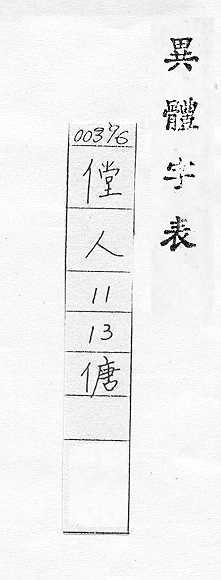 異體字表
00376
㑽
人
11
13
傏